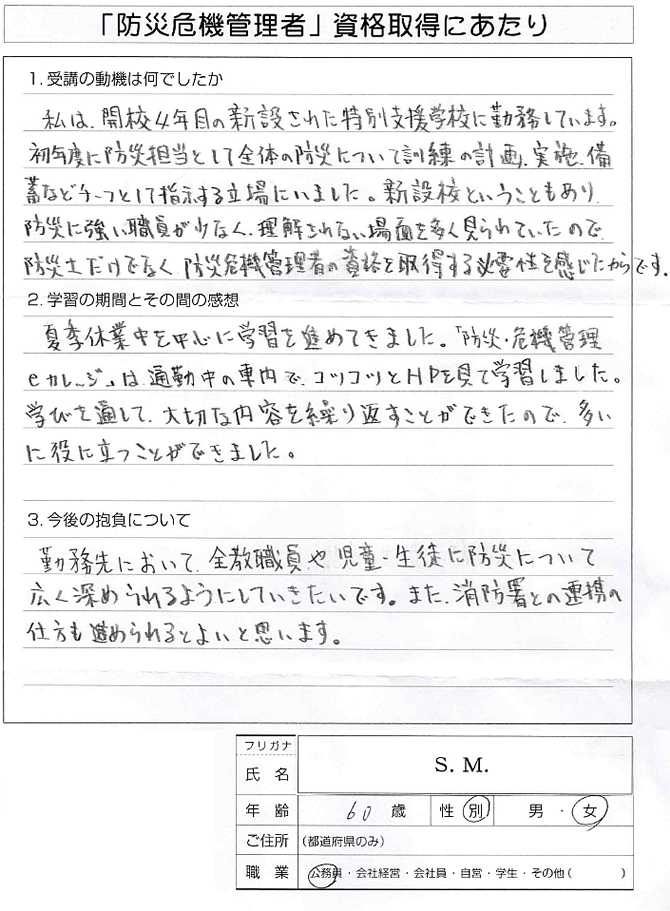 「防災危機管理者」資格取得にあたり
1. 受講の動機は何でしたか
私は、開校4年目の新設された特別支援学校に勤務しています。
初年度に防災担当として全体の防災について訓練の計画、実施、備
蓄などチーフとして指示する立場にいました。新設校ということもあり、
防災に強い職員が少なく、理解されない場面を多く見られていたので、
防災士だけでなく、防災危機管理者の資格を取得する必要性を感じたからです。
2. 学習の期間とその間の感想
夏季休業中を中心に学習を進めてきました。「防災・危機管理
eカレッジ」は、通勤中の車内で、コツコツとHPを見て学習しました。
学びを通して、大切な内容を繰り返すことができたので、多い
に役に立つことができました。
3. 今後の抱負について
勤務先において、全教職員や児童・生徒に防災について
広く深められるようにしていきたいです。また、消防署との連携の
仕方も進められるとよいと思います。
フリガナ
氏 名 S. M.
年 齢 60 歳 性 別 男 ・ 女
ご住所 (都道府県のみ)
職 業 公務員・会社経営・会社員・自営・学生・その他( )